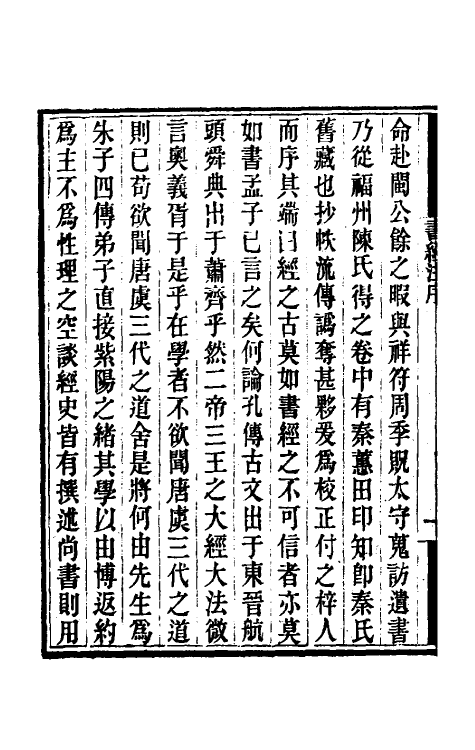 命赴閩公餘之暇與祥符周季貺太守蒐訪遺書
乃從福州陳氏得之卷中有秦蕙田印知卽秦氏
舊藏也抄帙流傳譌奪甚夥爰爲校正付之梓人
而序其端曰經之古莫如書經之不可信者亦莫
如書孟子已言之矣何論孔傳古文出于東晉航
頭舜典出于蕭齊乎然二帝三王之大經大法微
言奧義胥于是乎在學者不欲聞唐虞三代之道
則已苟欲聞唐虞三代之道舍是將何由先生爲
朱子四傳弟子直接紫陽之緒其學以由博返約
爲主不爲性理之空談經史皆有撰述尚書則用